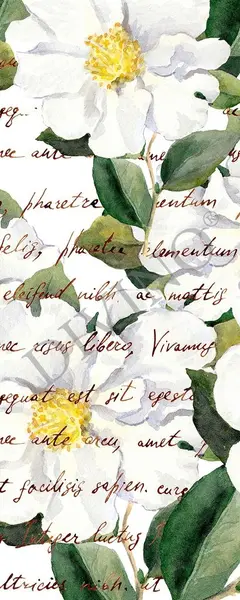 nec ante
pharetra elementum
felis, pharetra elementum
eleifend nibh, ac mattis
nec risus libero, Vivamus
sequat est sit egest
nec ante arcu, amet
t facilisis sapien. curs
Integer luctus
ltricies nibh. ut